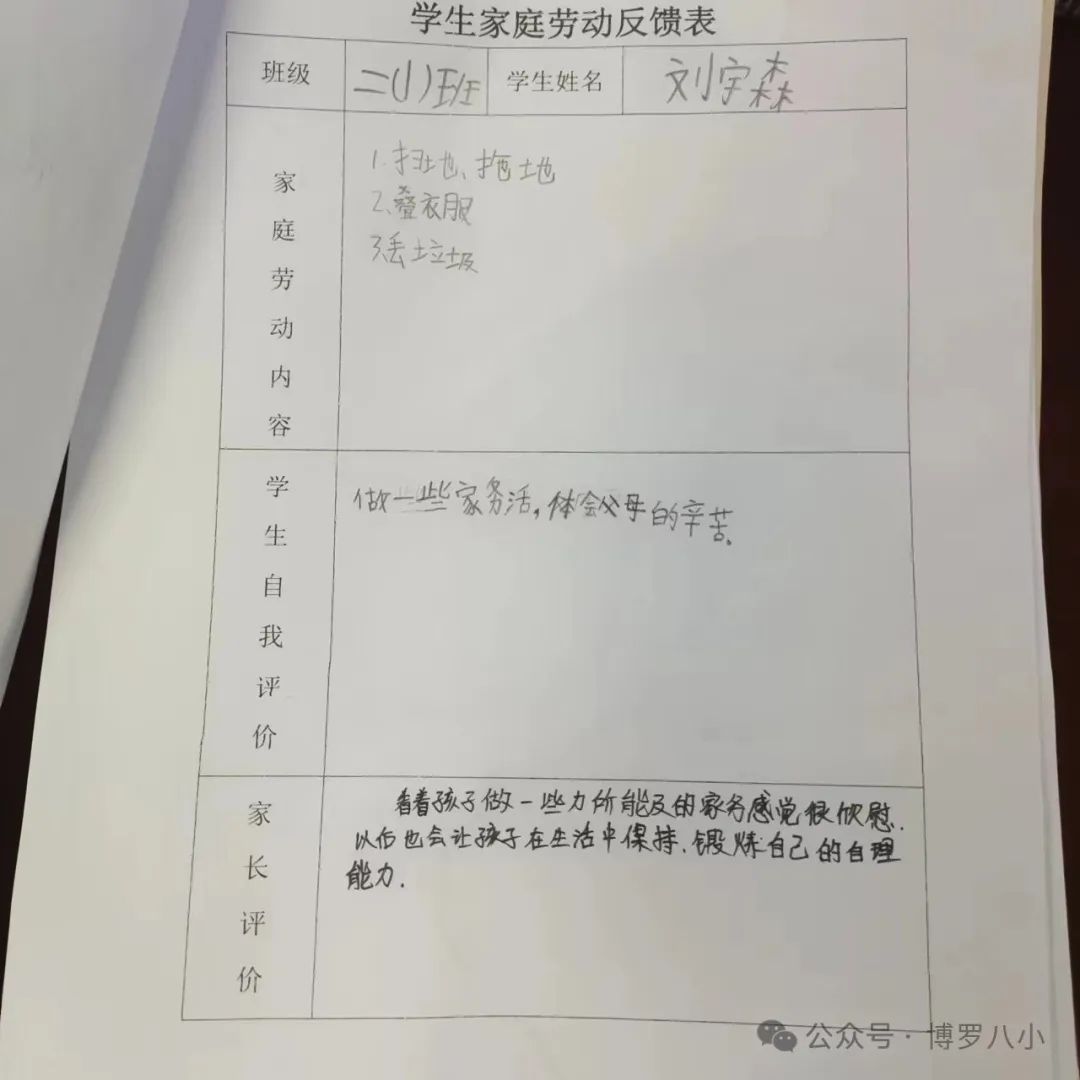 学生家庭劳动反馈表
班级 二(1)班 学生姓名 刘宇森
家庭劳动内容
1.扫地、拖地
2、叠衣服
3、丢垃圾
学生自我评价
做一些家务活,体会父母的辛苦。
家长评价
看着孩子做一些力所能及的家务感觉很欣慰.
以后也会让孩子在生活中保持.锻炼自己的自理
能力.
公众号·博罗八小